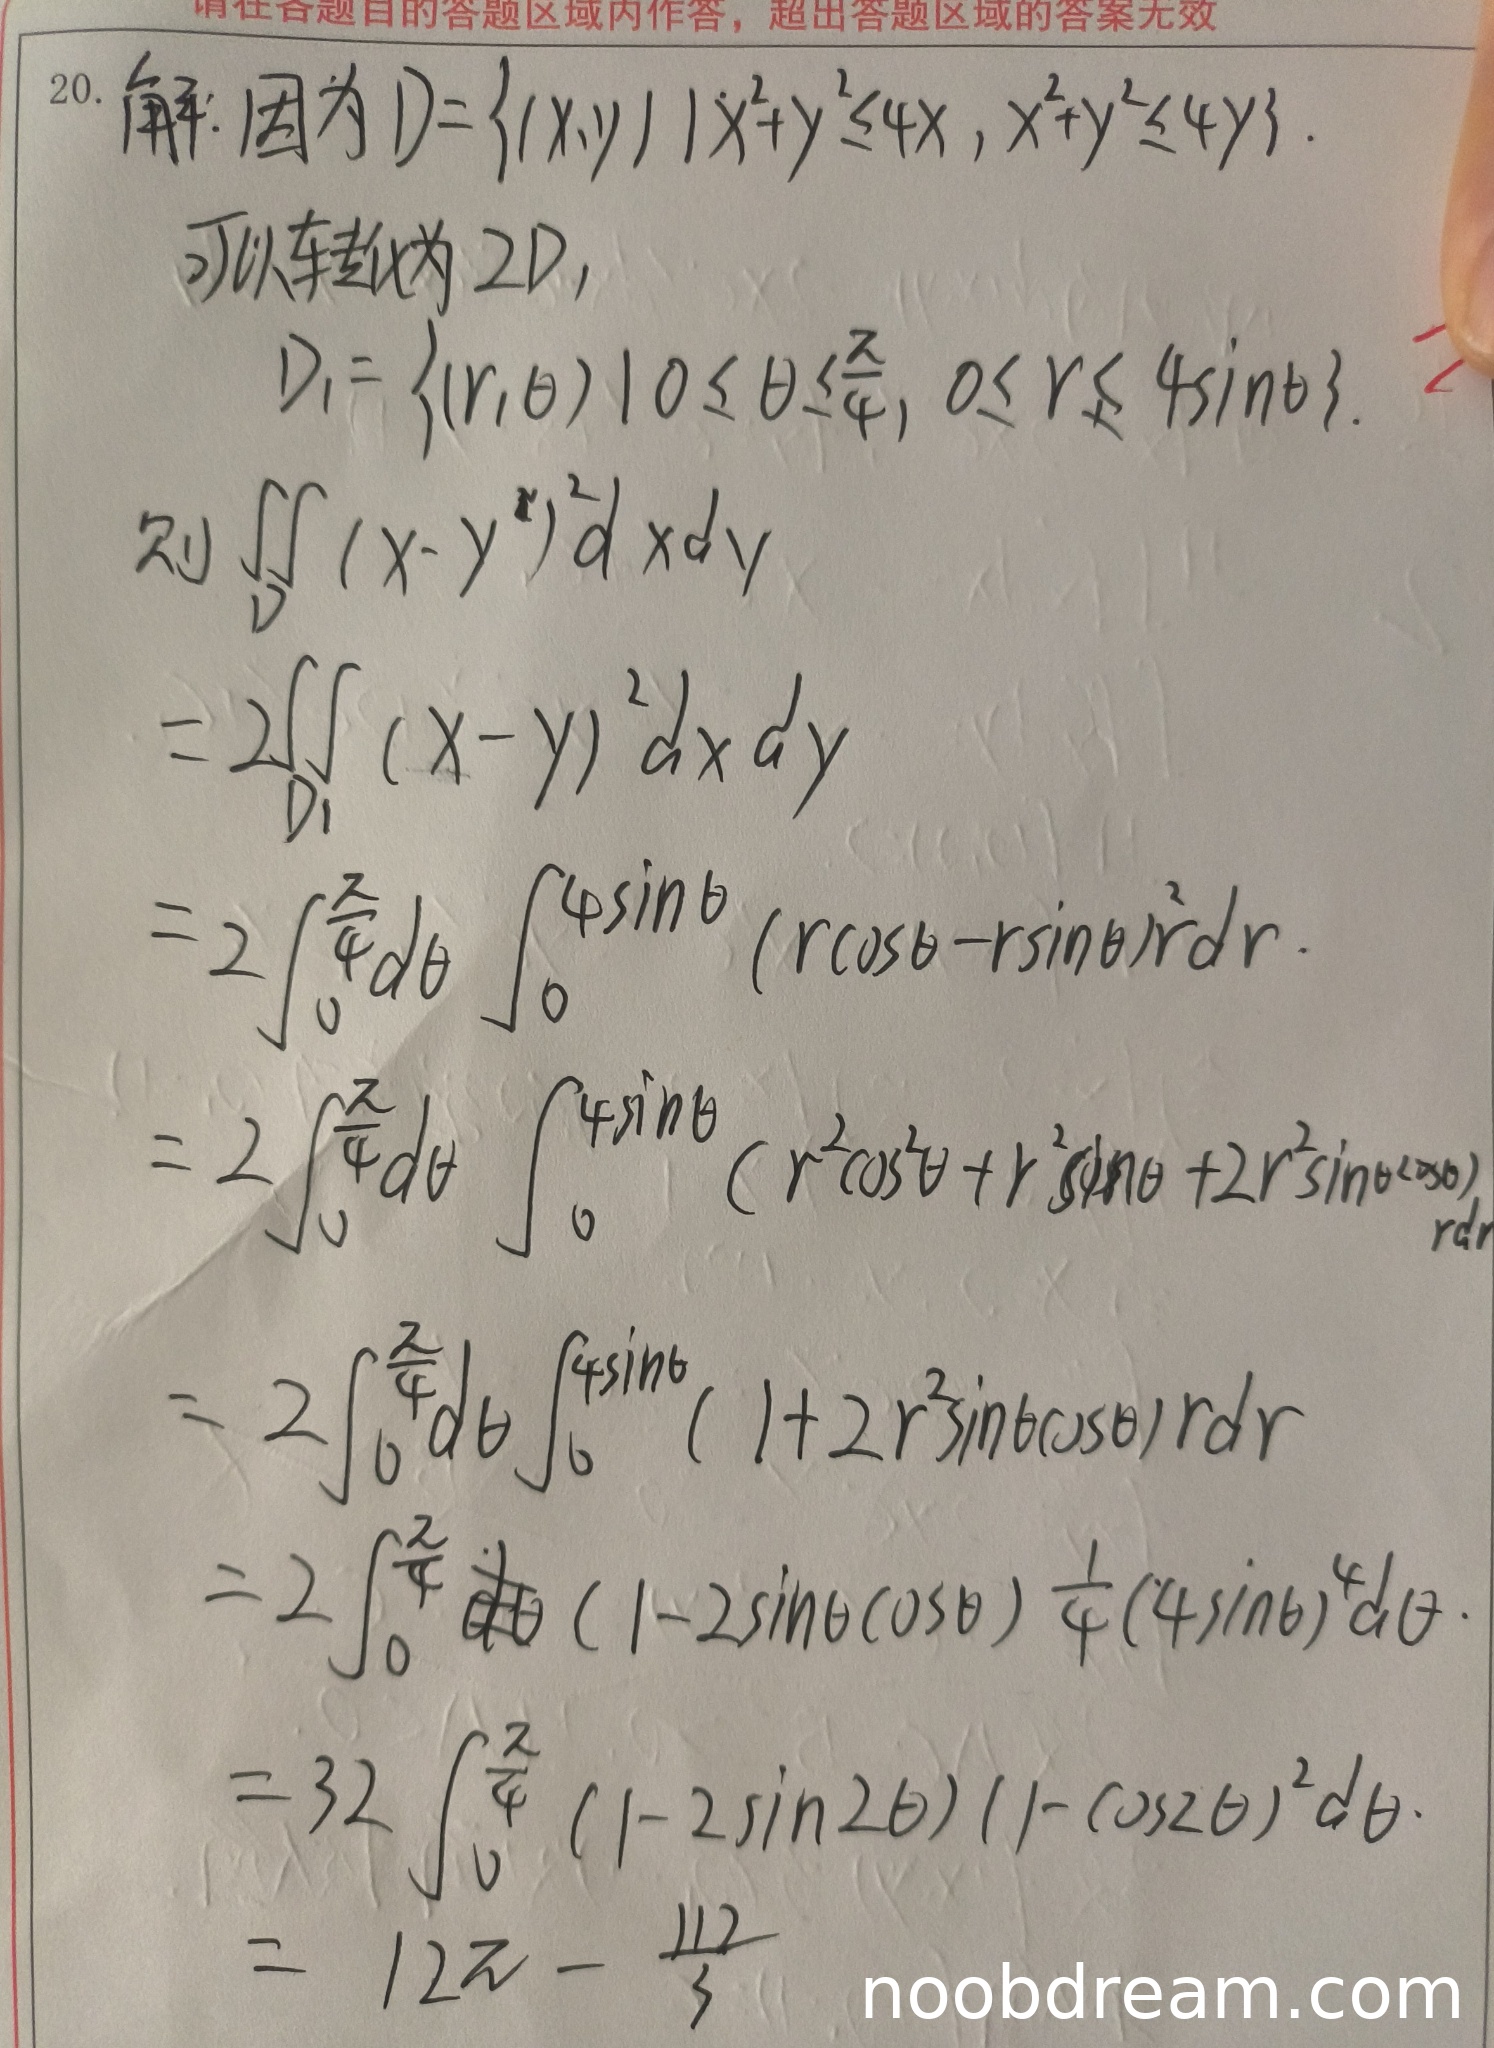 请在各题目的答题区域内作答，超出答题区域的答案无效
20. 解: 因为 D={(x,y) | x²+y²≤4x, x²+y²≤4y}.
可以转化为 2D₁
D₁={(r,θ) | 0≤θ≤π/4, 0≤r≤4sinθ}.
则 ∬_D (x-y)²dxdy
=2∬_D₁ (x-y)²dxdy
=2∫₀^(π/4)dθ ∫₀^(4sinθ) (rcosθ-rsinθ)²rdr.
=2∫₀^(π/4)dθ ∫₀^(4sinθ) (r²cos²θ+r²sinθ+2r²sinθcosθ)rdr
=2∫₀^(π/4)dθ∫₀^(4sinθ) (1+2r²sinθcosθ)rdr
=2∫₀^(π/4) (1-2sinθcosθ) 1/4 (4sinθ)⁴dθ.
=32∫₀^(π/4) (1-2sin2θ)(1-cos2θ)²dθ.
=12π-112/3
noobdream.com